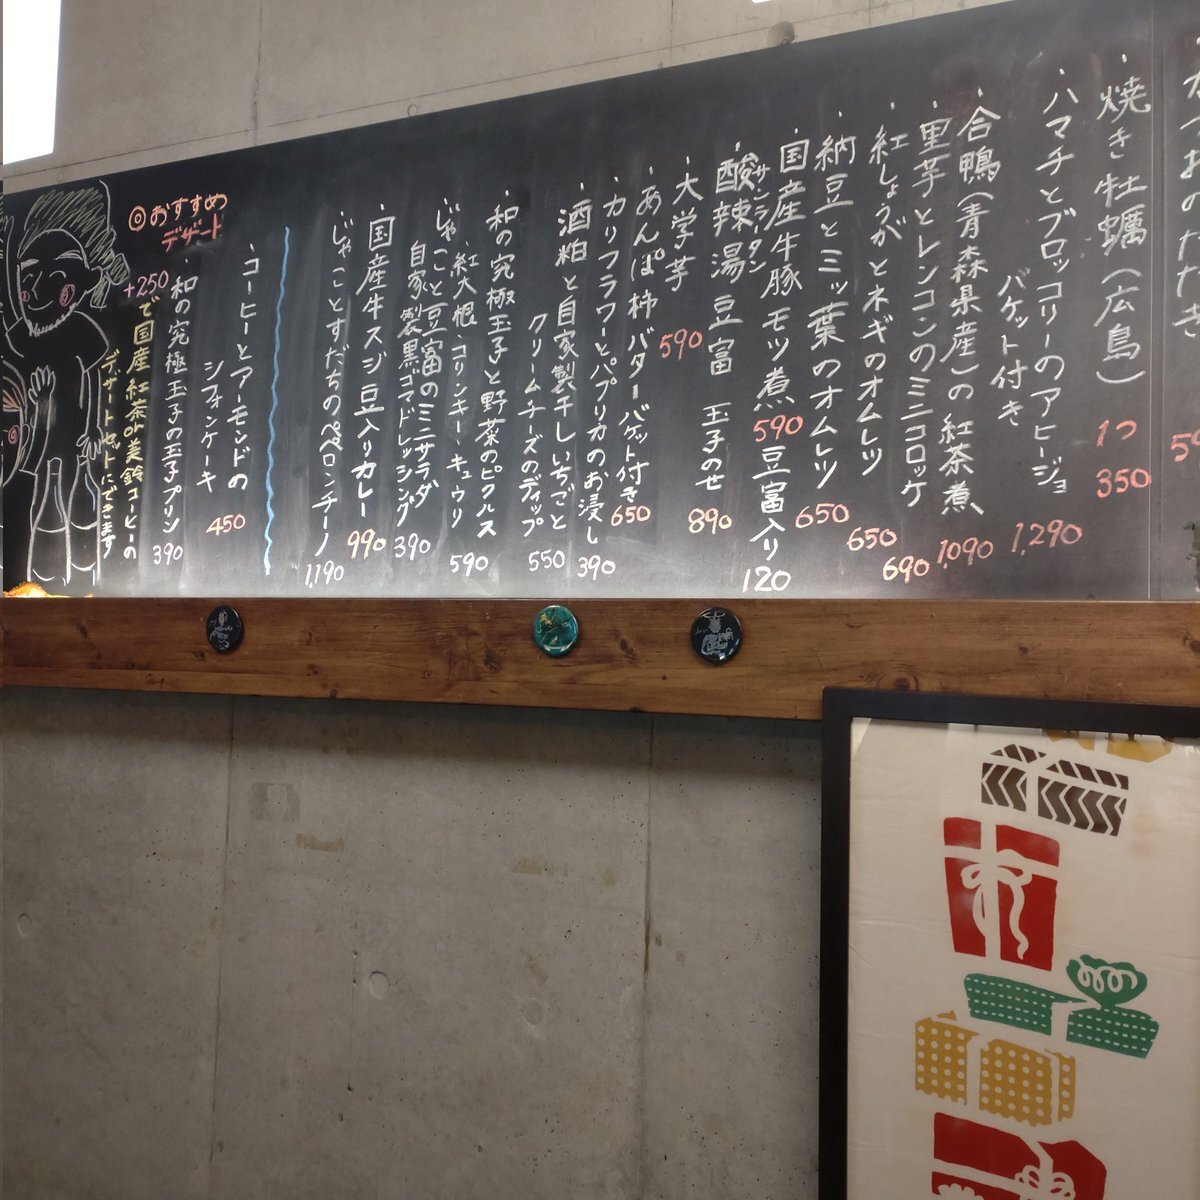 焼き牡蠣（広島） 1つ 350
・ハマチとブロッコリーのアヒージョ
バケット付き 1,290
・合鴨（青森県産）の紅茶煮 1,090
・里芋とレンコンのミニコロッケ 690
・紅しょうがとネギのオムレツ 650
・納豆と三ッ葉のオムレツ 650
・国産牛豚モツ煮 590 豆富入り 120
サンラータン
・酸辣湯豆富 玉子のせ 890
・大学芋 590
・あんぽ柿バターバゲット付き 650
・カリフラワーとパプリカのお浸し 390
・酒粕と自家製干しいちごと
クリームチーズのディップ 550
・和の究極玉子と野菜のピクルス
紅大根・コリンキー・キュウリ 590
・じゃこと豆富のミニサラダ
自家製黒ゴマドレッシング 390
・国産牛スジ豆入りカレー 990
・じゃことすだちのペペロンチーノ 1,190
◎おすすめ
デザート
・コーヒーとアーモンドの
シフォンケーキ 450
・和の究極玉子の玉子プリン 390
+250で国産紅茶or美鈴コーヒーの
デザートセットにできます